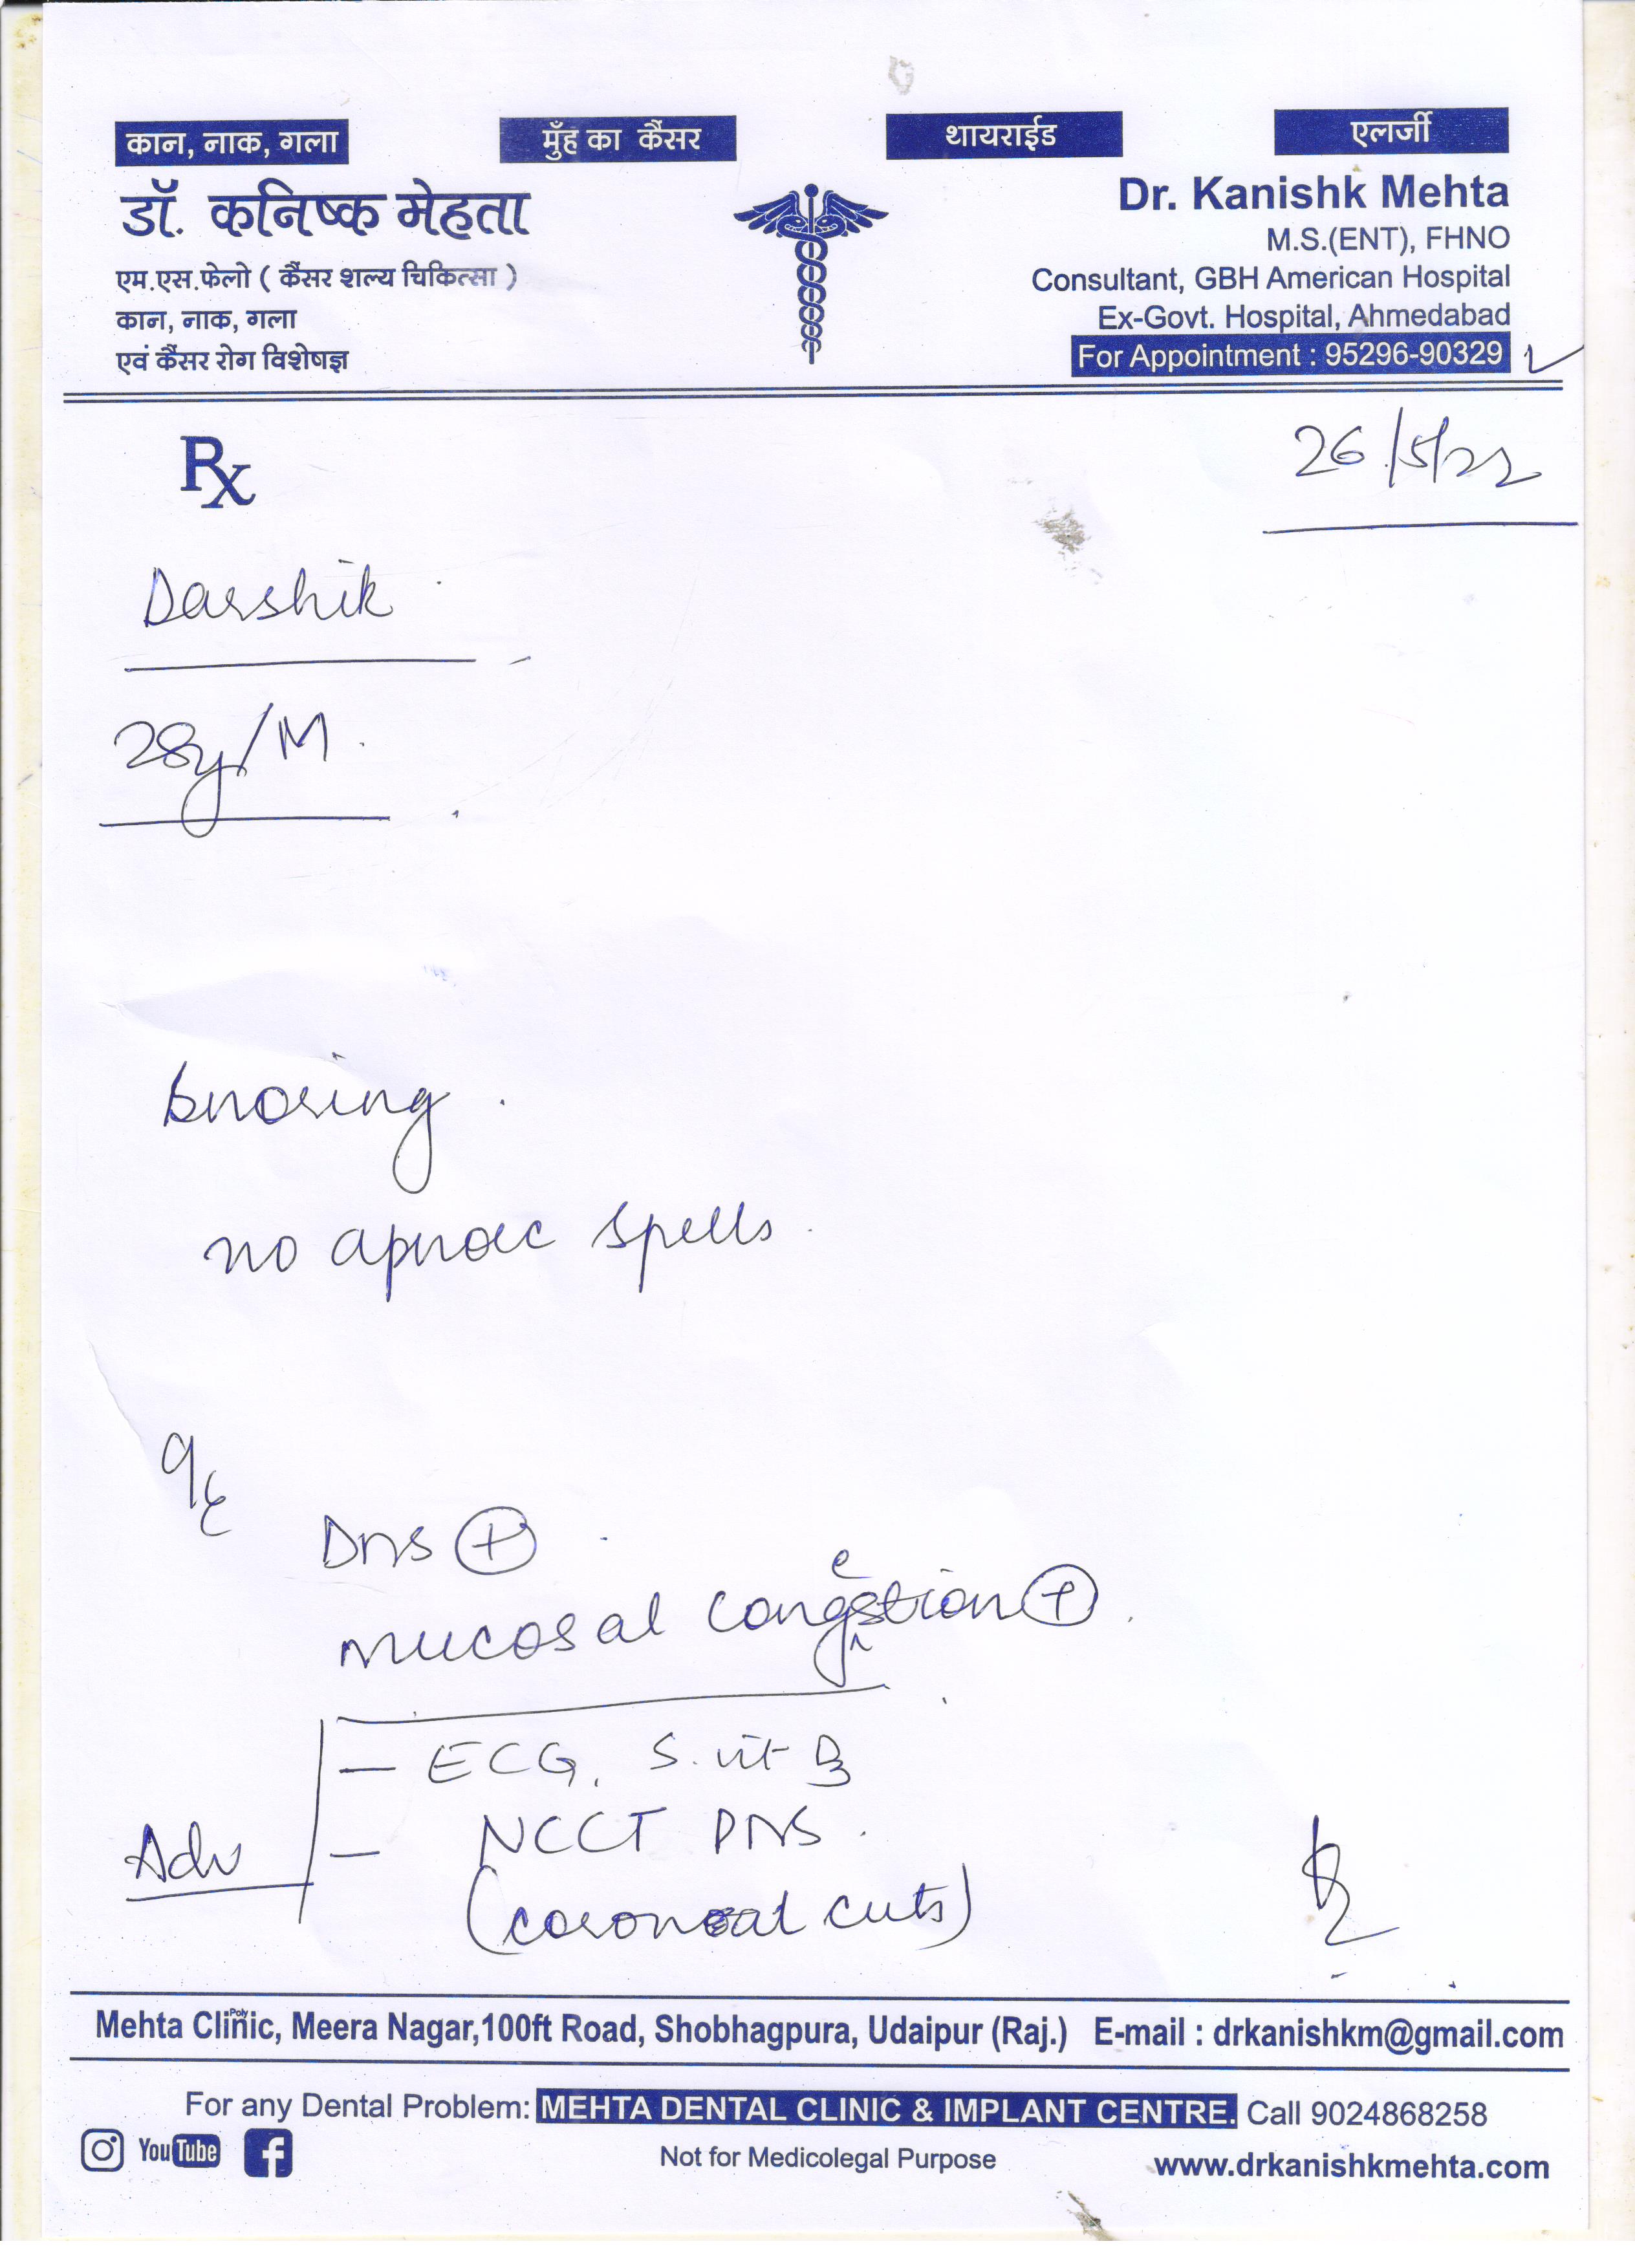 कान, नाक, गला
मुँह का कैंसर
थायराईड
एलर्जी
डॉ. कनिष्क मेहता
एम.एस.फेलो ( कैंसर शल्य चिकित्सा )
कान, नाक, गला
एवं कैंसर रोग विशेषज्ञ
Dr. Kanishk Mehta
M.S.(ENT), FHNO
Consultant, GBH American Hospital
Ex-Govt. Hospital, Ahmedabad
For Appointment : 95296-90329
Rx
26/5/22
Darshik
28y/M
snoring
no apnoec spells
O/E
DNS +
mucosal congestion +
Adv
- ECG, S. vit B
- NCCT PNS
(coronoal cuts)
Mehta Poly Clinic, Meera Nagar,100ft Road, Shobhagpura, Udaipur (Raj.) E-mail : drkanishkm@gmail.com
For any Dental Problem: MEHTA DENTAL CLINIC & IMPLANT CENTRE. Call 9024868258
YouTube
Not for Medicolegal Purpose
www.drkanishkmehta.com